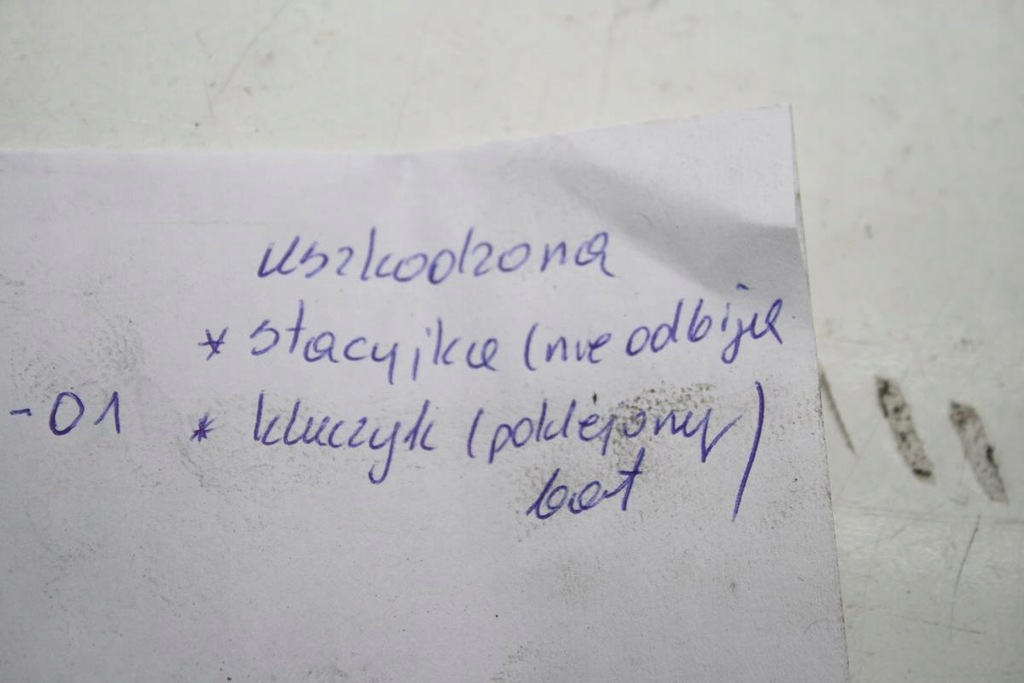 uszkodzona
* stacyjka (nie odbija
-01 * kluczyk (poklejony)
bat